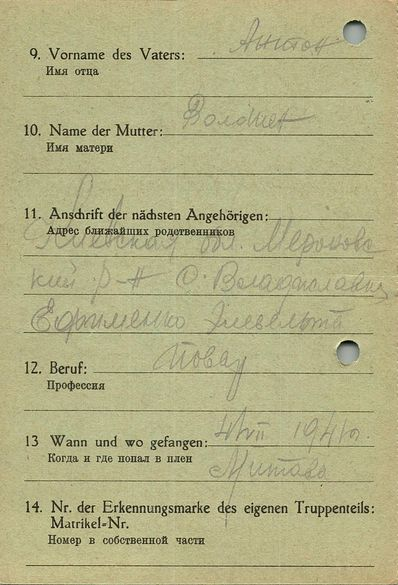 9. Vorname des Vaters: Антон
Имя отца
10. Name der Mutter:
Имя матери
11. Anschrift der nächsten Angehörigen:
Адрес ближайших родственников
Киевская обл. Мероновс
кий р-н с. Владиславка
Ефименко
12. Beruf: Повар
Профессия
13 Wann und wo gefangen: 4/VII 1941г.
Когда и где попал в плен
Митава
14. Nr. der Erkennungsmarke des eigenen Truppenteils:
Matrikel-Nr.
Номер в собственной части